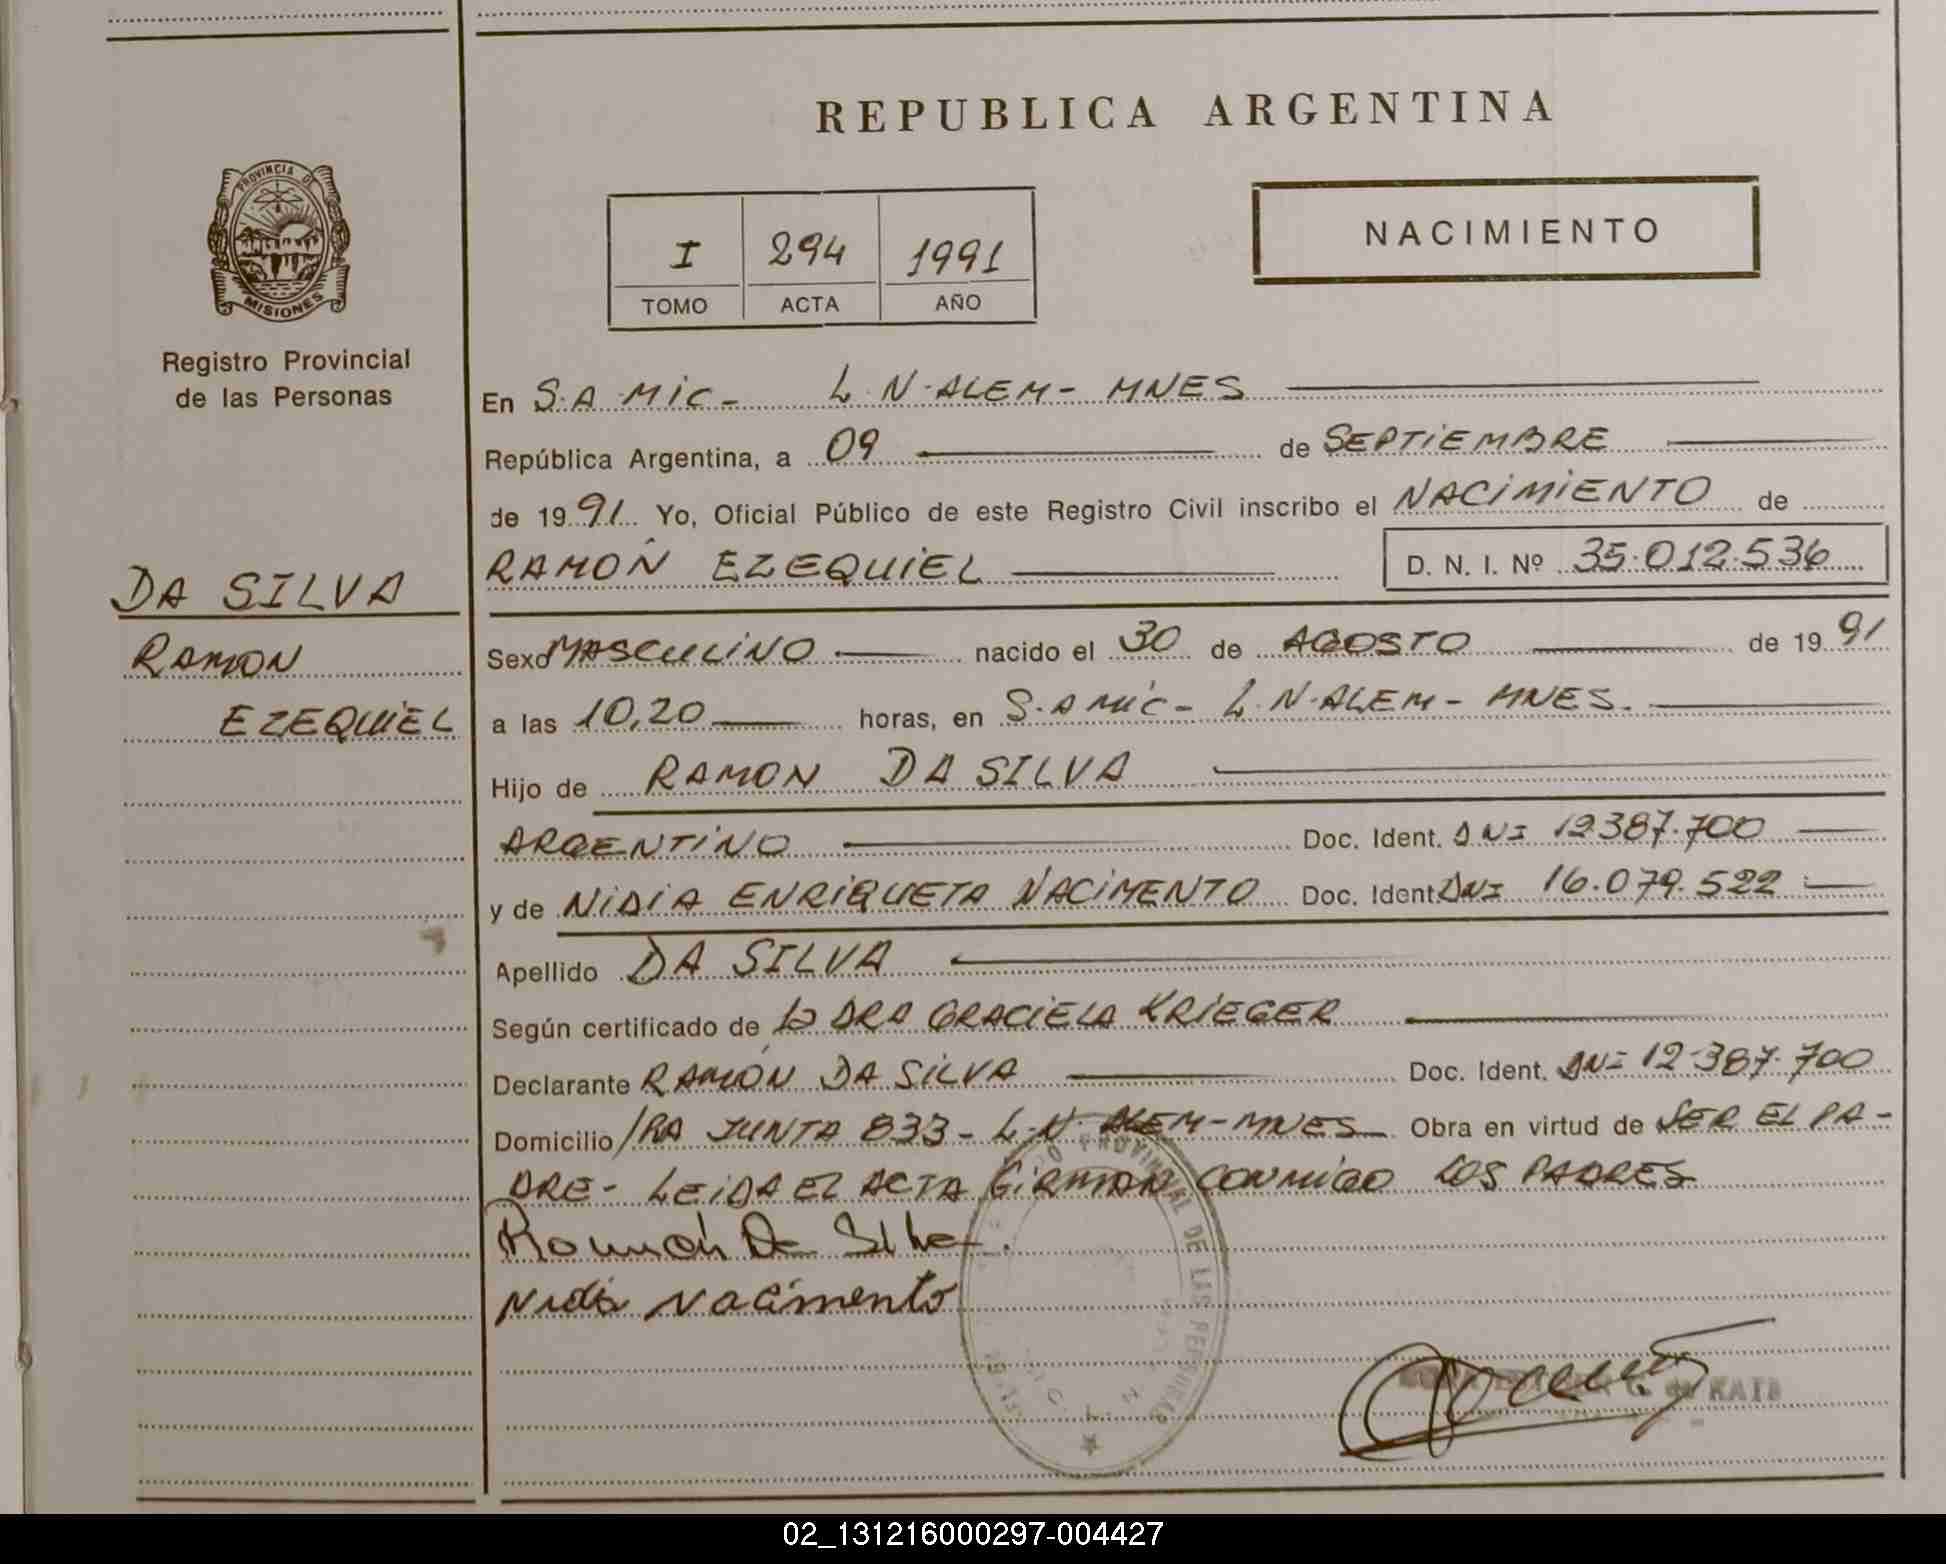 REPUBLICA ARGENTINA
PROVINCIA DE
MISIONES
Registro Provincial
de las Personas
I 294 1991
TOMO ACTA AÑO
NACIMIENTO
En S.A MiC- L.N.ALEM- MNES
República Argentina, a 09 de SEPTiEMBRE
de 1991 Yo, Oficial Público de este Registro Civil inscribo el NACiMiENTO de
RAMON EZEQUiEL D. N. I. Nº 35.012.536
DA SILVA
RAMON
EZEQUiEL
Sexo MASCULiNO nacido el 30 de AGOSTO de 1991
a las 10,20 horas, en S.A MiC- L.N.ALEM- MNES.
Hijo de RAMON DA SILVA
ARGENTiNO Doc. Ident. DNI 12.387.700
y de NiDiA ENRiQUETA NACiMENTO Doc. Ident. DNI 16.079.522
Apellido DA SILVA
Según certificado de la DRA GRACiELA KRiEGER
Declarante RAMÓN DA SiLVA Doc. Ident. DNI 12.387.700
Domicilio 1RA JUNTA 833- L.N. ALEM-MNES Obra en virtud de SER EL PA-
DRE- LEiDA EL ACTA FiRMAN CONMiGO LOS PADRES
Ramón Da Silva.
Nidia Nacimento
PROVINCIAL DE LAS PERSONAS
de KATZ
02_131216000297-004427